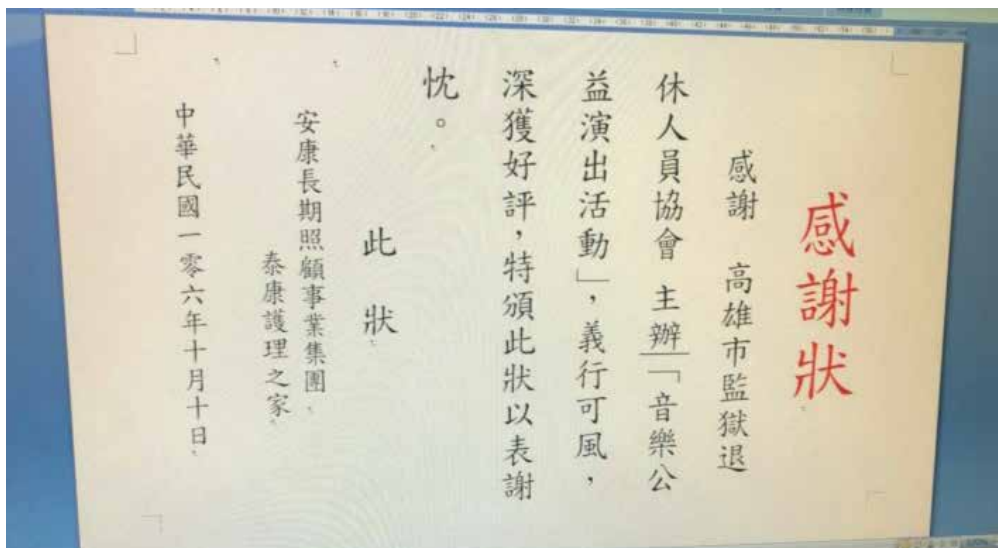 感謝狀
感謝 高雄市監獄退
休人員協會 主辦「音樂公
益演出活動」，義行可風，
深獲好評，特頒此狀以表謝
忱。
此 狀
安康長期照顧事業集團
泰康護理之家
中華民國一零六年十月十日